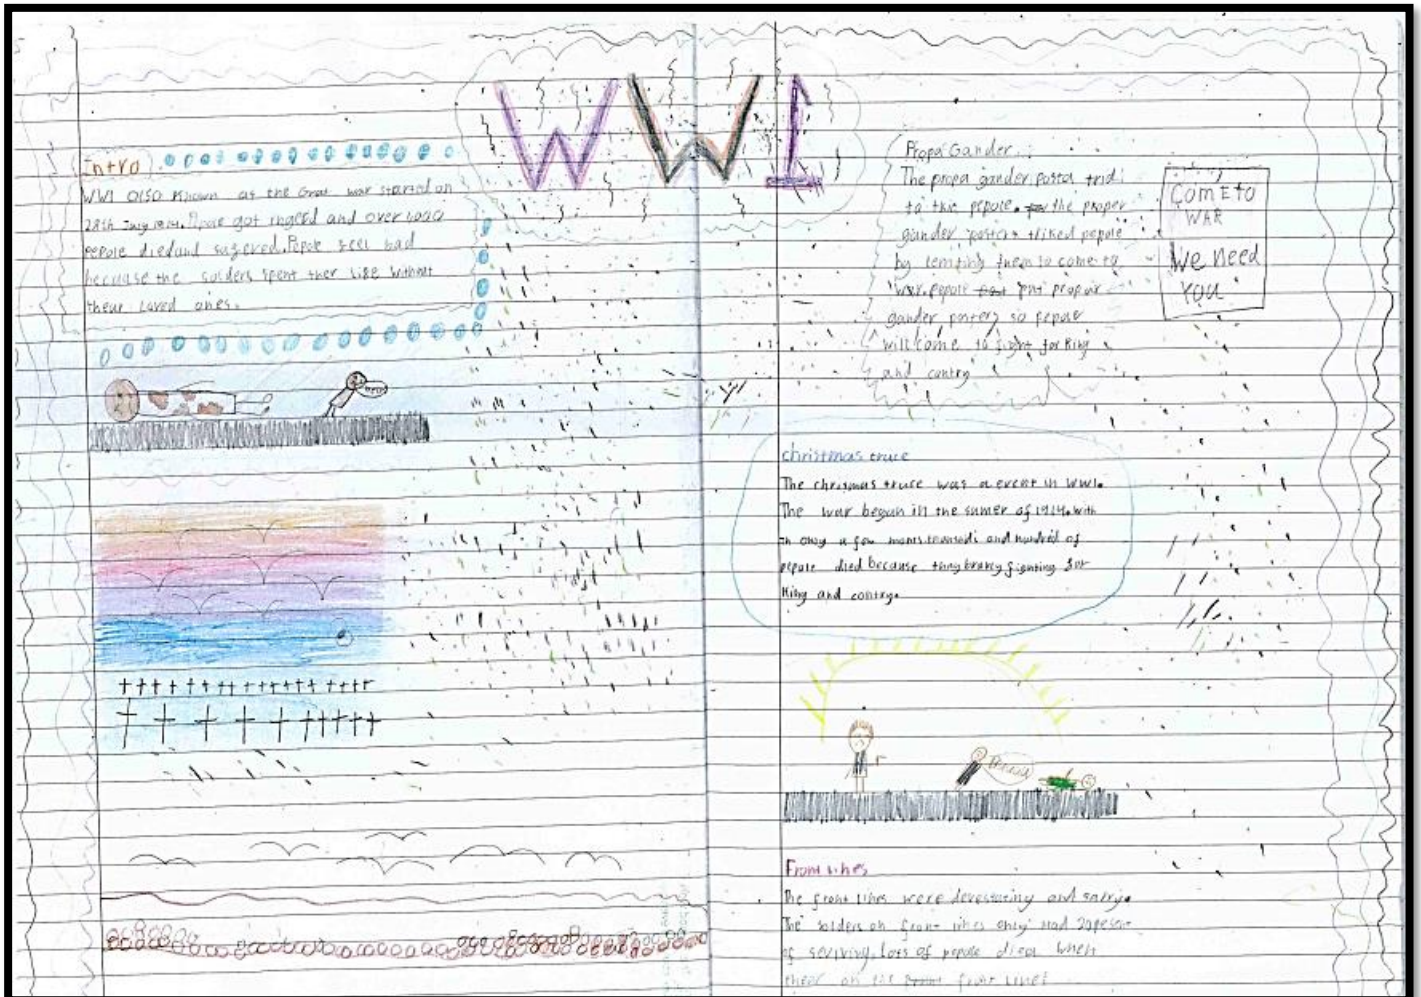 WW1
Intro
WW1 OlSO Known as the Great war started on
28th July 1914. Pepole got ingeed and over
pepole died and sufered. Pepole feel bad
because the solders spent ther life without
thear loved ones.
Propa Gander
The propa gander posta trid
to the pepole. the proper
gander posters triked pepole
by temting them to come to
war. pepole put propar
gander posters so pepole
will come to fight for King
and contry
ComE to
WAR
We need
You
christmas truce
The chrismas truce was a event in WW1.
The war begun in the sumer of 1914. with
in only a few and hundrid of
pepole died because they fighting for
King and contry.
Front lines
The front lines were devestating and
The solders on front lines only had 20
of serviving. lots of pepole died when
on the front lines